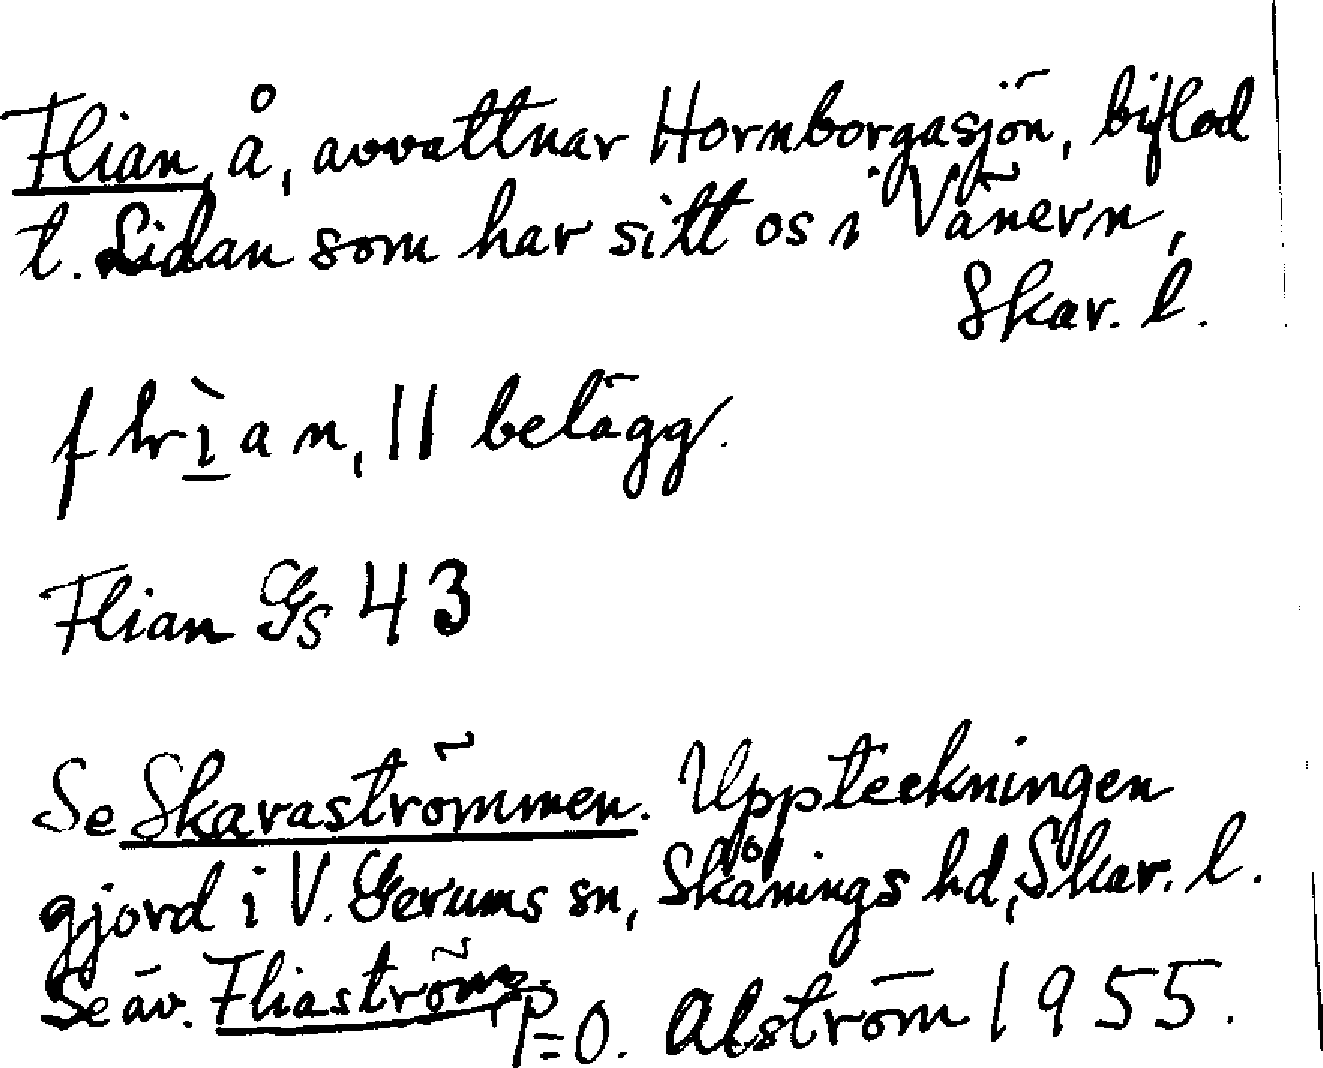 Flian, å, avvattnar Hornborgasjön, biflod
t. Lidan som har sitt os i Vänern,
Skar. l.
f l r ì a n, 11 belägg.
Flian Gs 43
Se Skaraströmmen. Uppteckningen
gjord i V. Gerums sn, Skånings hd, Skar. l.
Se äv. Fliaström. P=O. Alström 1955.